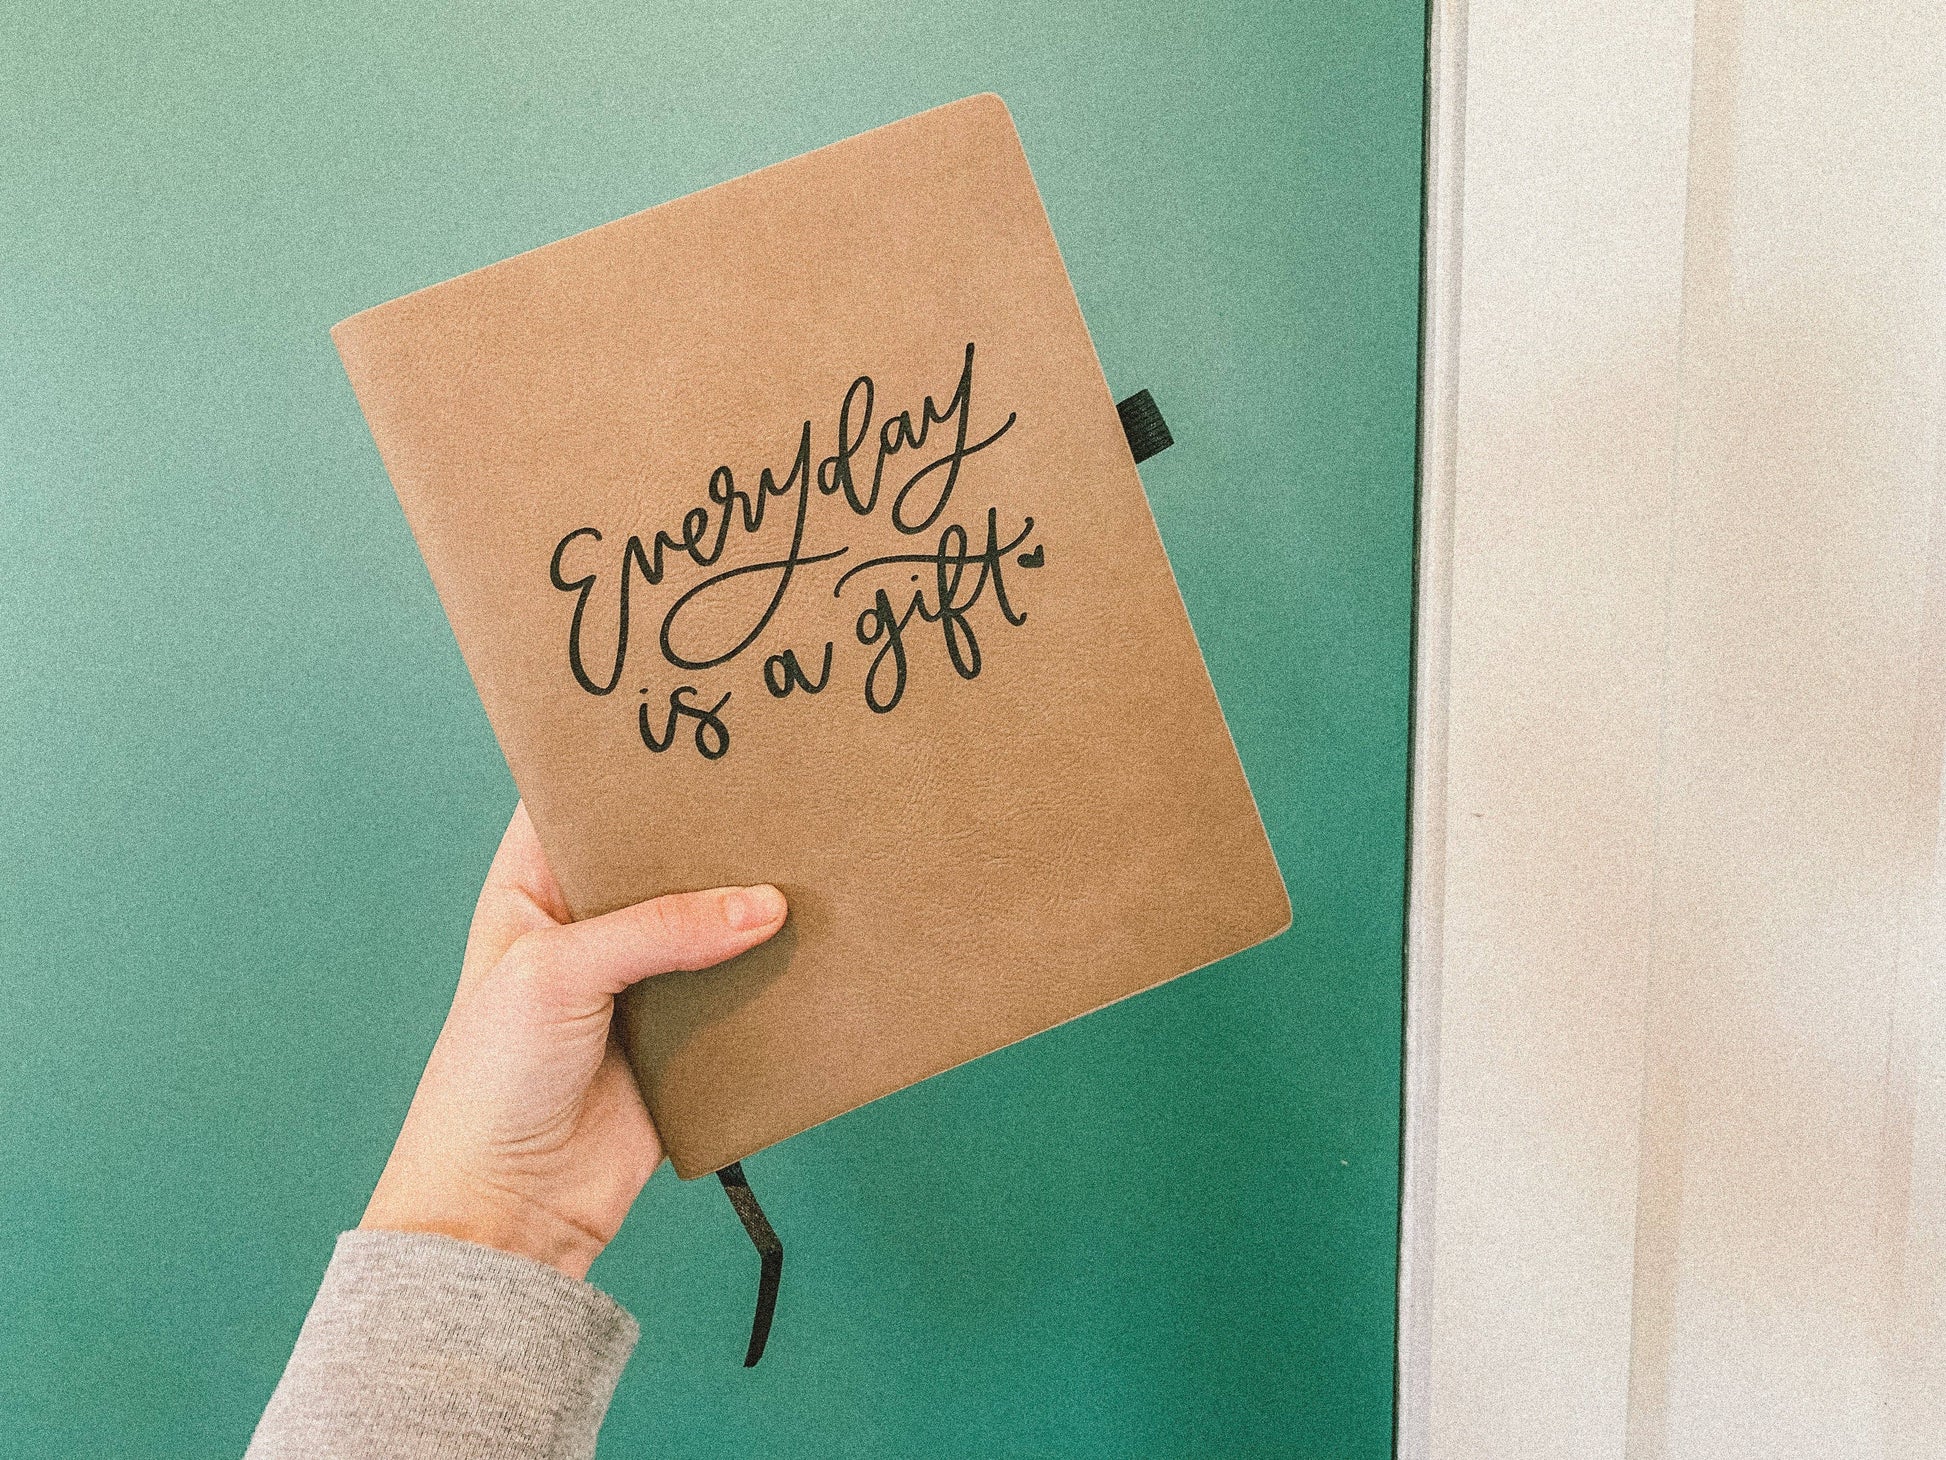 Everyday
is a gift.